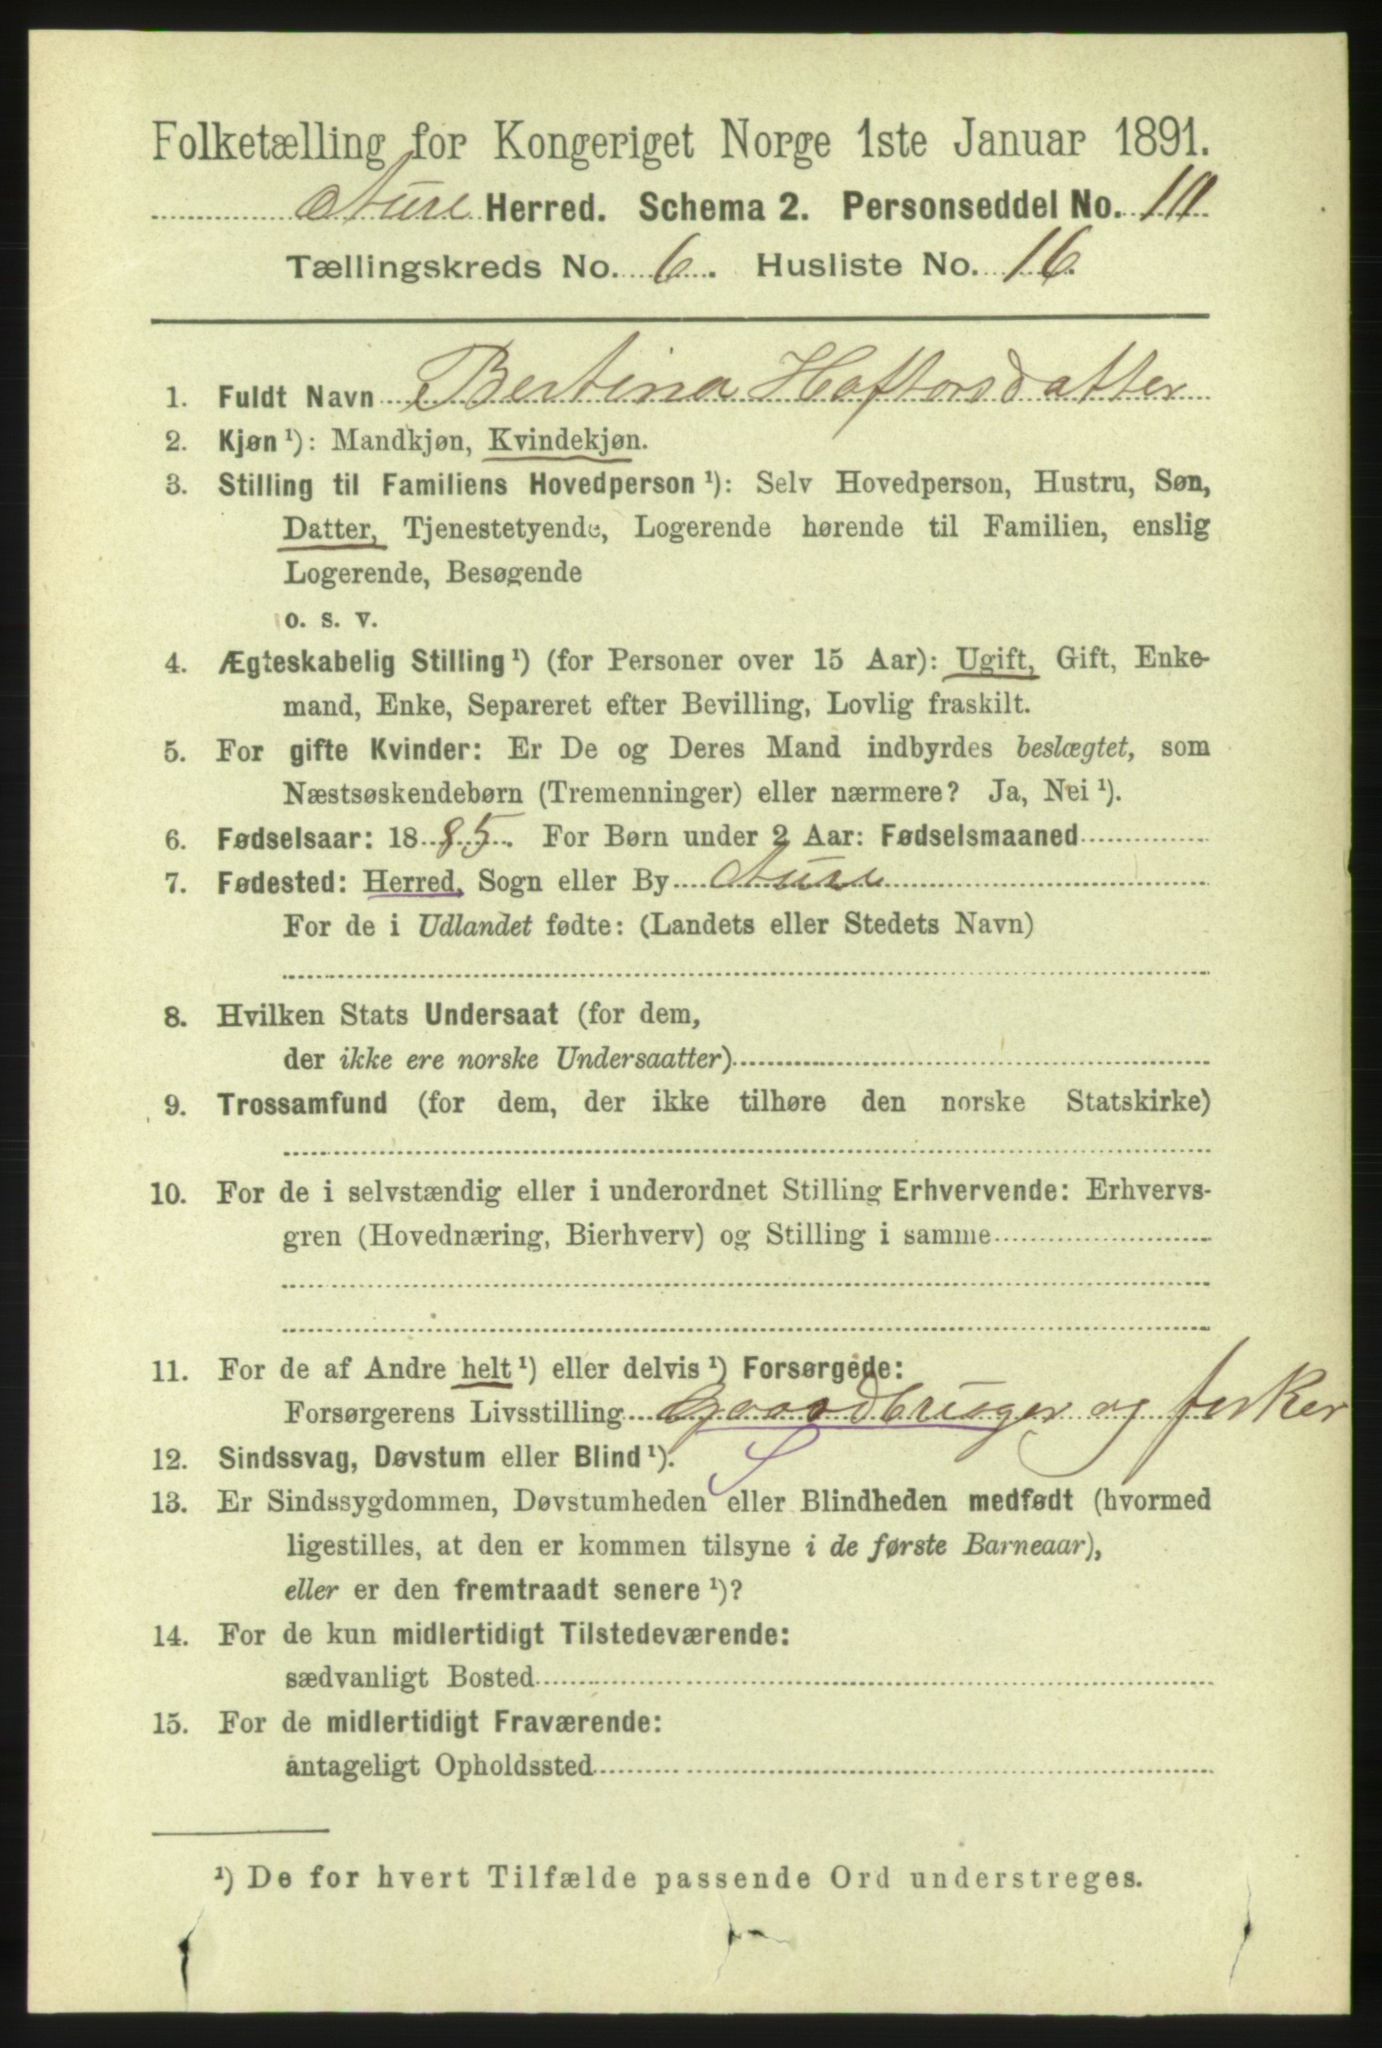 Folketælling for Kongeriget Norge 1ste Januar 1891.
Aure Herred. Schema 2. Personseddel No.
Tællingskreds No. 6. Husliste No. 16.
1. Fuldt Navn Bertina Haftorsdatter
2. Kjøn ¹): Mandkjøn, Kvindekjøn.
3. Stilling til Familiens Hovedperson ¹): Selv Hovedperson, Hustru, Søn,
Datter, Tjenestetyende, Logerende hørende til Familien, enslig
Logerende, Besøgende
o. s. v.
4. Ægteskabelig Stilling ¹) (for Personer over 15 Aar): Ugift, Gift, Enke-
mand, Enke, Separeret efter Bevilling, Lovlig fraskilt.
5. For gifte Kvinder: Er De og Deres Mand indbyrdes beslægtet, som
Næstsøskendebørn (Tremenninger) eller nærmere? Ja, Nei ¹).
6. Fødselsaar: 1885. For Børn under 2 Aar: Fødselsmaaned
7. Fødested: Herred, Sogn eller By Aure
For de i Udlandet fødte: (Landets eller Stedets Navn)
8. Hvilken Stats Undersaat (for dem,
der ikke ere norske Undersaatter)
9. Trossamfund (for dem, der ikke tilhøre den norske Statskirke)
10. For de i selvstændig eller i underordnet Stilling Erhvervende: Erhvervs-
gren (Hovednæring, Bierhverv) og Stilling i samme
11. For de af Andre helt ¹) eller delvis ¹) Forsørgede:
Forsørgerens Livsstilling gaardbruger og fisker
12. Sindssvag, Døvstum eller Blind ¹).
13. Er Sindssygdommen, Døvstumheden eller Blindheden medfødt (hvormed
ligestilles, at den er kommen tilsyne i de første Barneaar),
eller er den fremtraadt senere ¹)?
14. For de kun midlertidigt Tilstedeværende:
sædvanligt Bosted
15. For de midlertidigt Fraværende:
antageligt Opholdssted
¹) De for hvert Tilfælde passende Ord understreges.